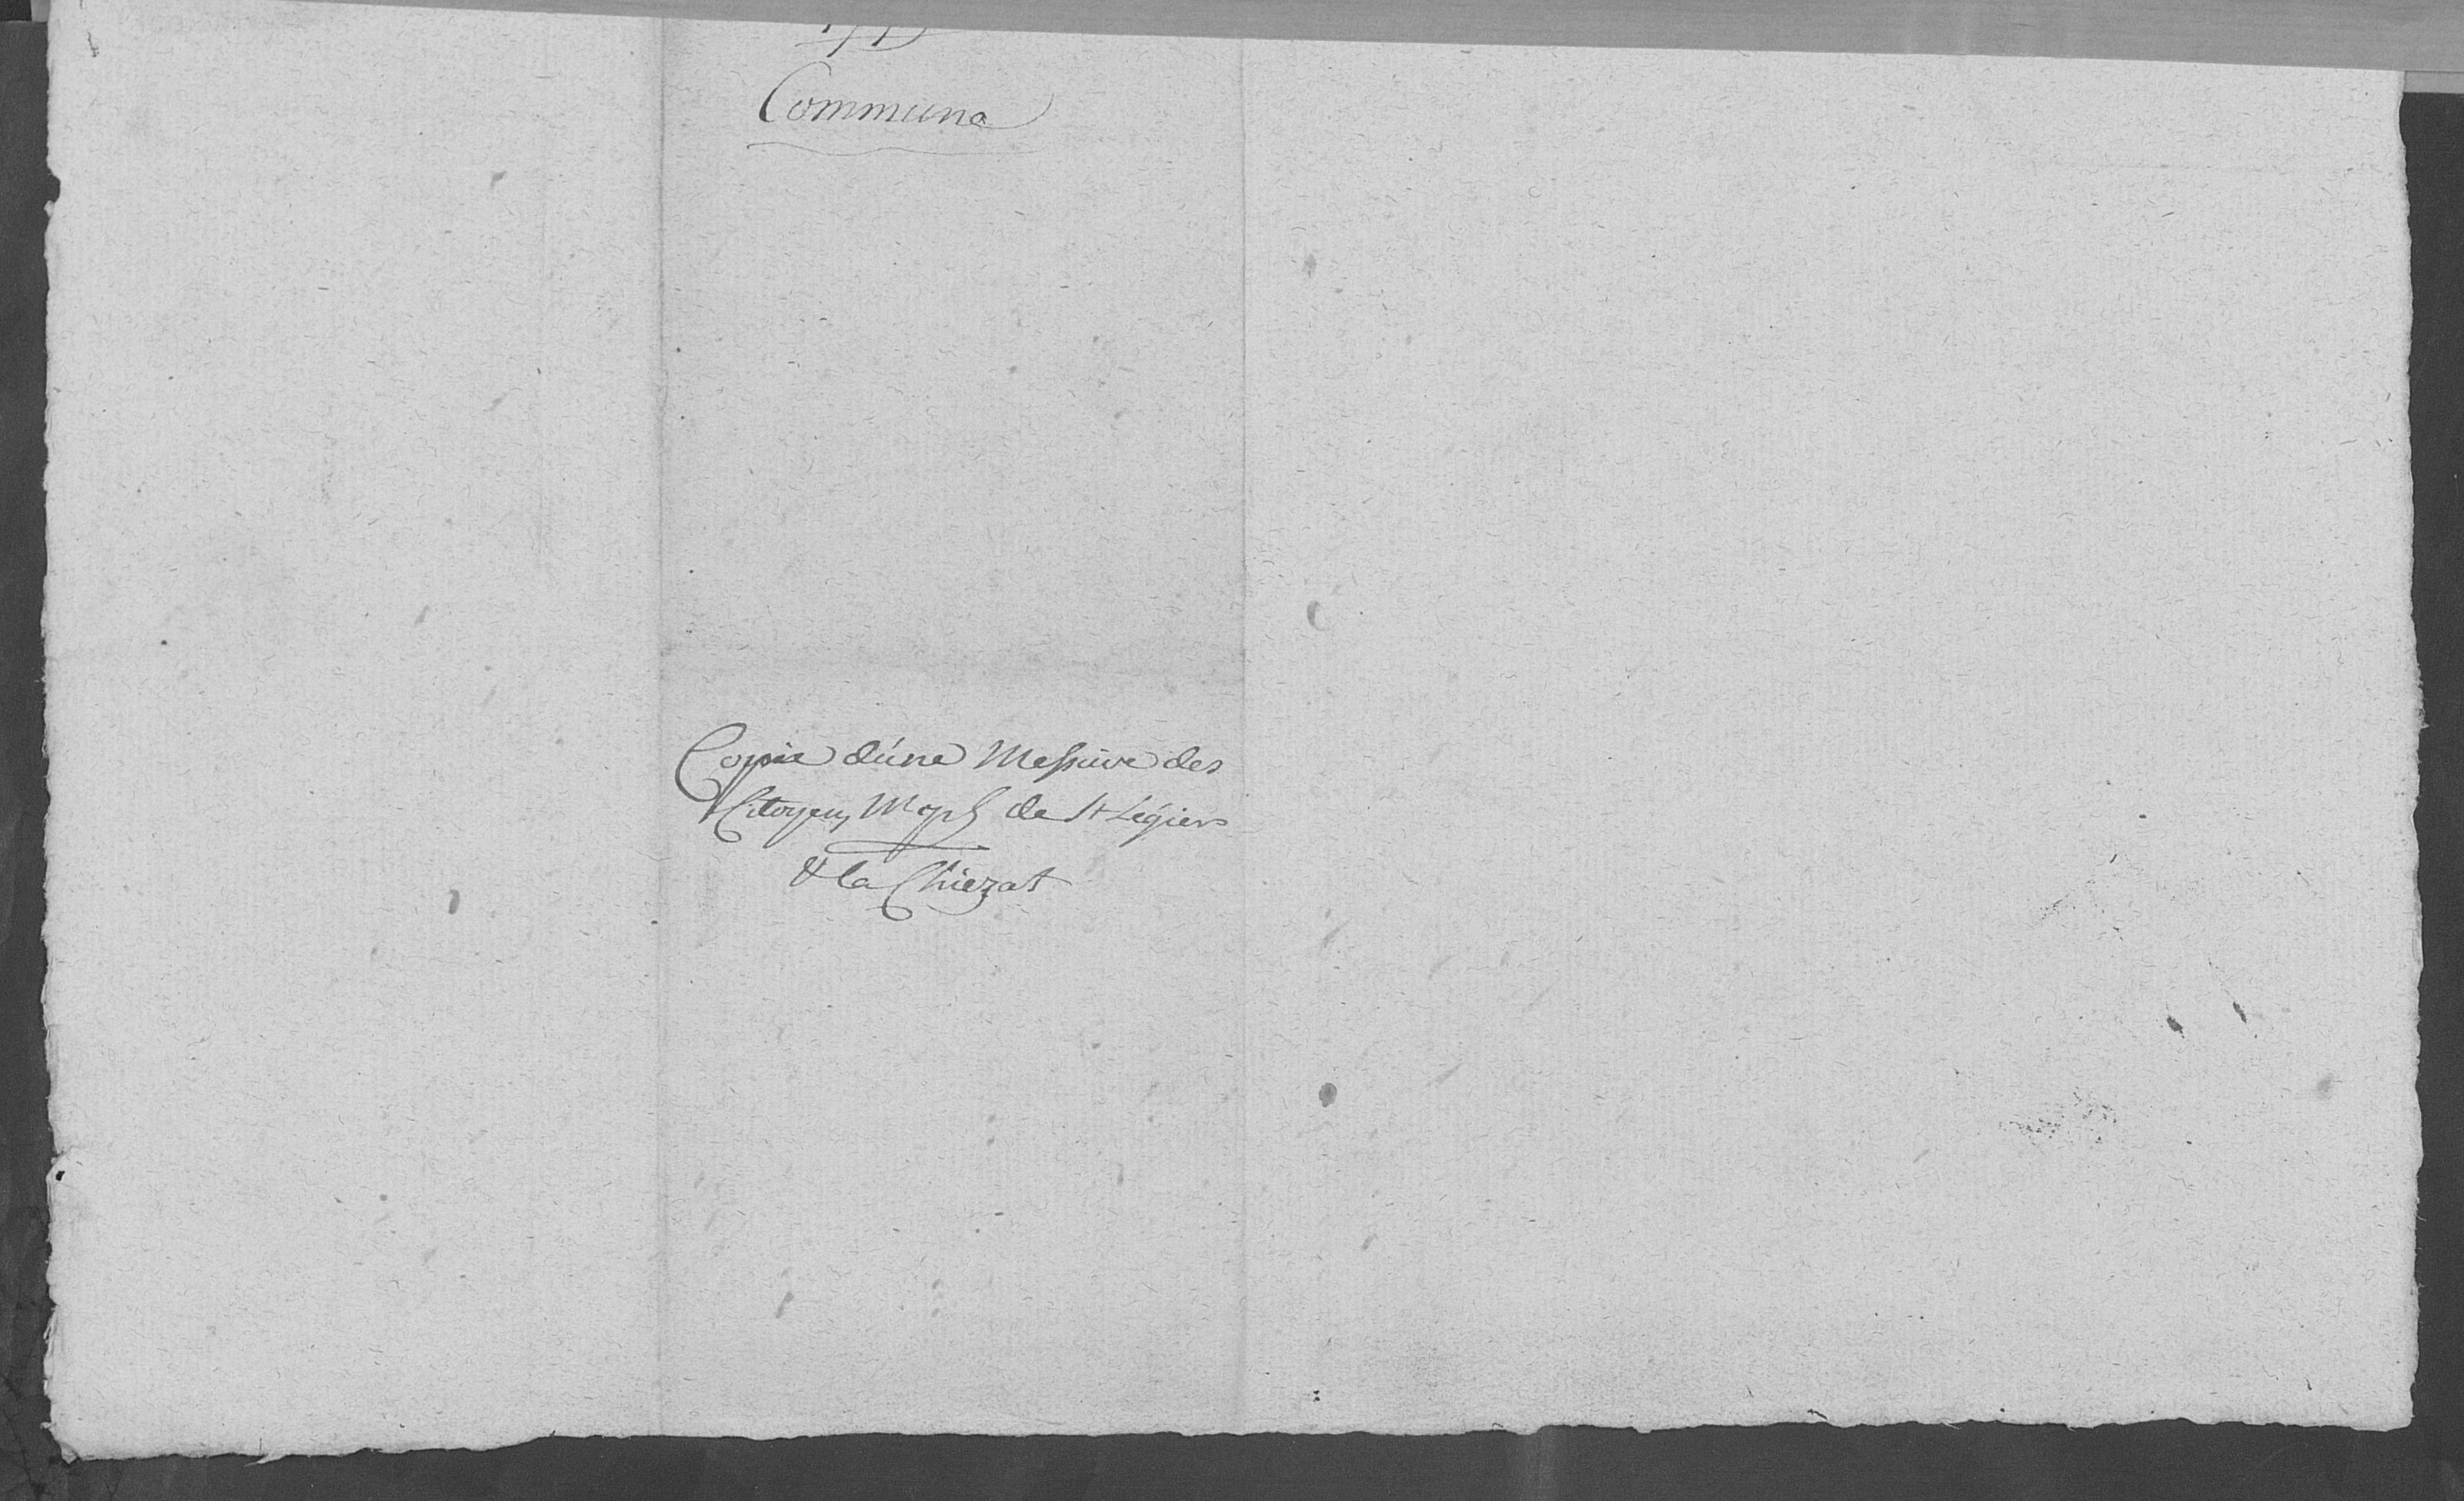 Commune
Copie d'une Missive des
Citoyens Mcpl de St Légiers
& la Chiezat